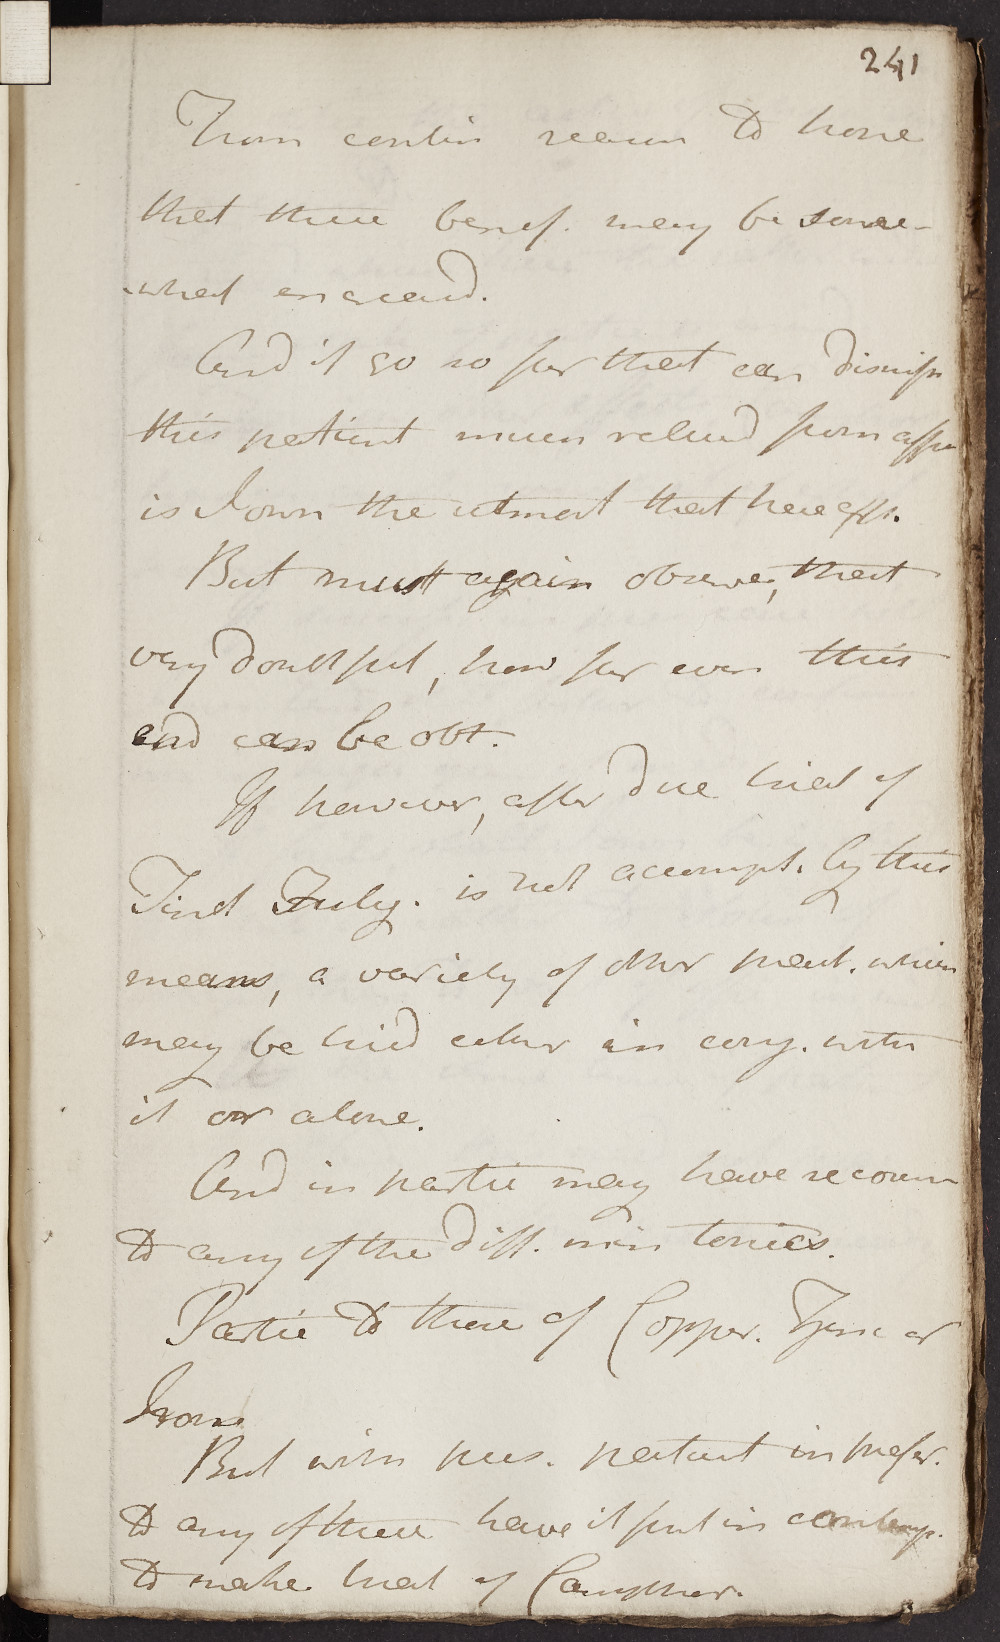 241
From contin reason to hope
that these benef. may be some-
what increasd.
And if go so far that can dismiss
this patient much relievd from
is I own the utmost that have
But must again observe, that
very doubtful, how far even this
end can be obt.
If however, after due trial of
Tinct Fulig. is not accompt. by this
means, a variety of other which
may be tried either in conj. with
it or alone.
And in partic may have recourse
to any of the diff. min tonics.
Partic to those of Copper. or
Iron
But with pres. patient in prefer.
to any of these have it first in contemp.
to make trial of Camphor.